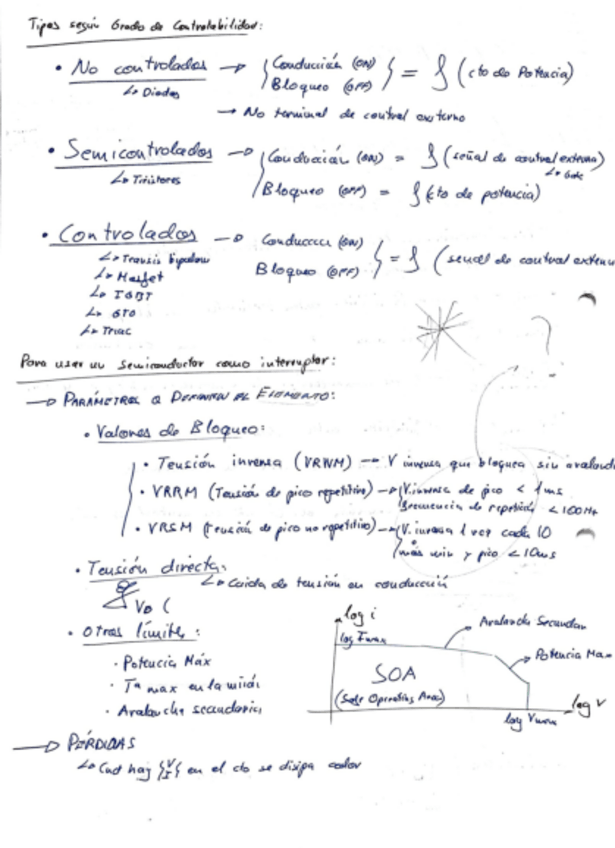 Tipos según Grado de Controlabilidad:
• No controlados → { Conducción (ON)
Bloqueo (OFF) } = f (cto de Potencia)
↳ Diodos
→ No terminal de control externo
• Semicontrolados → { Conducción (ON) = f (señal de control externa)
↳ Gate
↳ Tiristores
Bloqueo (OFF) = f (cto de potencia)
• Controlados → Conducción (ON)
Bloqueo (OFF) } = f (señal de control extern
↳ Transis bipolar
↳ Mosfet
↳ IGBT
↳ GTO
↳ Triac
?
Para usar un semiconductor como interruptor:
→ PARÁMETROS Q DEFINEN EL ELEMENTO:
• Valores de Bloqueo:
• Tensión inversa (VRWM) → V inversa que bloquea sin avalanch
• VRRM (Tensión de pico repetitivo) → { V. inversa de pico < 1ms
frecuencia de repetición < 100Hz
• VRSM (tensión de pico no repetitivo) → { V. inversa 1 vez cada 10
más min y pico < 10ms
• Tensión directa:
↳ Caída de tensión en conducción
Vo (
• Otros límites:
• Potencia Máx
• Tª max en la unión
• Avalancha secundaria
log i
log Imax
Avalancha Secundar
Potencia Max
SOA
(Safe Operating Area)
log V
log Vmax
→ PÉRDIDAS
↳ Cnd hay { V
I } en el cto se disipa calor